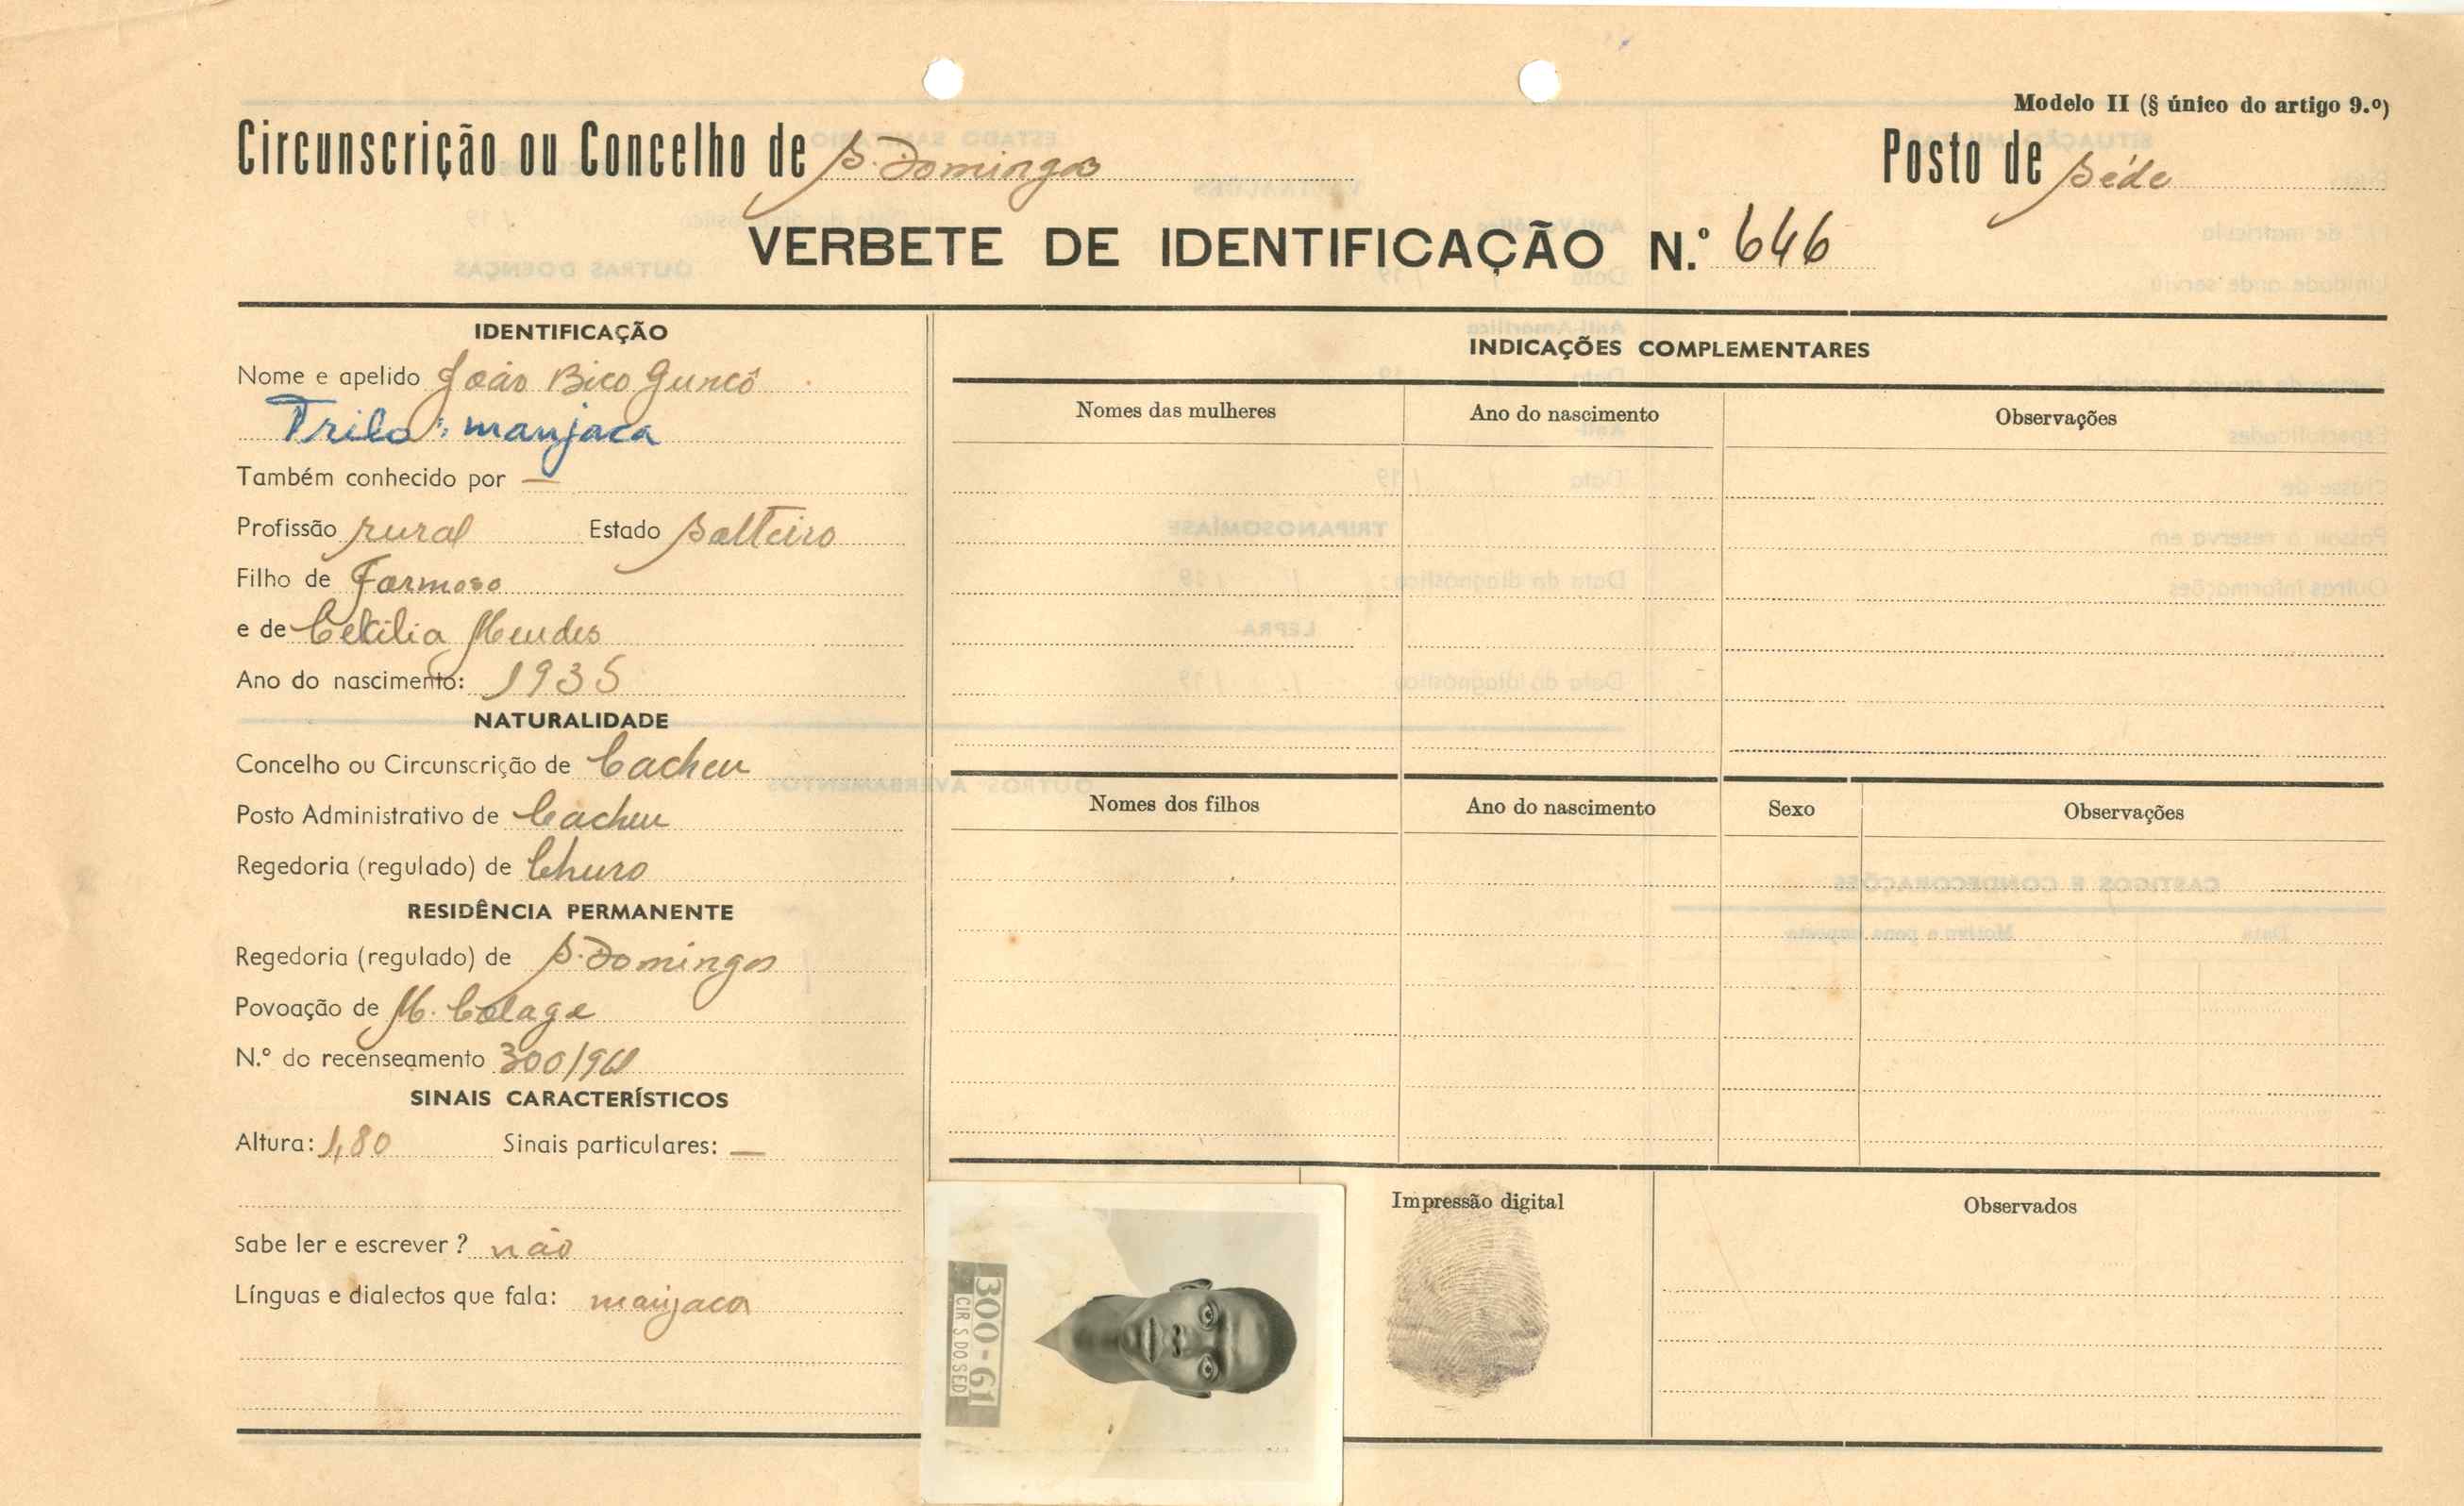 Modelo II (§ único do artigo 9.º)
Circunscrição ou Concelho de S. Domingos
Posto de Séde
VERBETE DE IDENTIFICAÇÃO N.º 646
IDENTIFICAÇÃO
Nome e apelido João Bico Guncó
Tribo: manjaca
Também conhecido por —
Profissão rural Estado Solteiro
Filho de Formoso
e de Cecilia Mendes
Ano do nascimento: 1935
NATURALIDADE
Concelho ou Circunscrição de Cacheu
Posto Administrativo de Cacheu
Regedoria (regulado) de Churo
RESIDÊNCIA PERMANENTE
Regedoria (regulado) de S. Domingos
Povoação de M. Colage
N.º do recenseamento 300/961
SINAIS CARACTERÍSTICOS
Altura: 1,80 Sinais particulares: —
Sabe ler e escrever? não
Línguas e dialectos que fala: manjaca
INDICAÇÕES COMPLEMENTARES
Nomes das mulheres Ano do nascimento Observações
Nomes dos filhos Ano do nascimento Sexo Observações
300-61
CIR S DO SED
Impressão digital
Observados